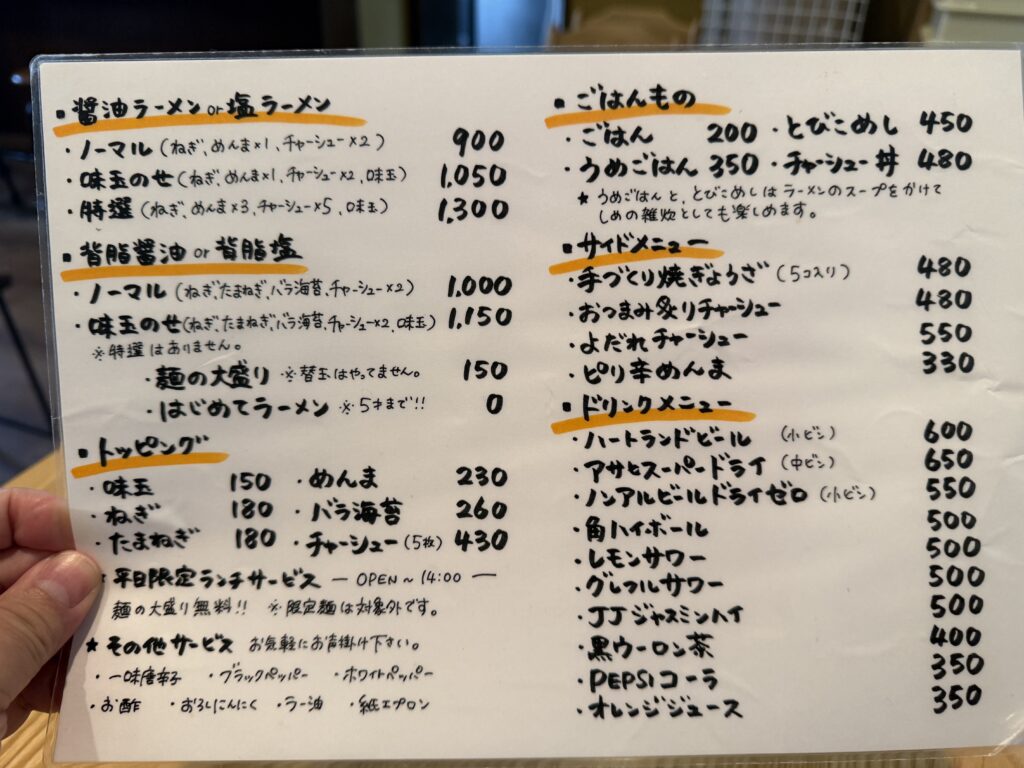 ▪醤油ラーメン or 塩ラーメン
・ノーマル(ねぎ、めんま×1、チャーシュー×2) 900
・味玉のせ(ねぎ、めんま×1、チャーシュー×2、味玉) 1,050
・特選(ねぎ、めんま×3、チャーシュー×5、味玉) 1,300
▪背脂醤油 or 背脂塩
・ノーマル(ねぎ、たまねぎ、バラ海苔、チャーシュー×2) 1,000
・味玉のせ(ねぎ、たまねぎ、バラ海苔、チャーシュー×2、味玉) 1,150
※特選はありません。
・麺の大盛り ※替玉はやってません。 150
・はじめてラーメン ※5才まで!! 0
▪トッピング
・味玉 150 ・めんま 230
・ねぎ 180 ・バラ海苔 260
・たまねぎ 180 ・チャーシュー(5枚) 430
★平日限定ランチサービス ― OPEN~14:00 ―
麺の大盛り無料!! ※限定麺は対象外です。
★その他サービス お気軽にお声掛け下さい。
・一味唐辛子 ・ブラックペッパー ・ホワイトペッパー
・お酢 ・おろしにんにく ・ラー油 ・紙エプロン
▪ごはんもの
・ごはん 200 ・とびこめし 450
・うめごはん 350 ・チャーシュー丼 480
★うめごはんと、とびこめしはラーメンのスープをかけて
しめの雑炊としても楽しめます。
▪サイドメニュー
・手づくり焼ぎょうざ(5コ入り) 480
・おつまみ炙りチャーシュー 480
・よだれチャーシュー 550
・ピリ辛めんま 330
▪ドリンクメニュー
・ハートランドビール (小ビン) 600
・アサヒスーパードライ (中ビン) 650
・ノンアルビールドライゼロ (小ビン) 550
・角ハイボール 500
・レモンサワー 500
・グレフルサワー 500
・JJジャスミンハイ 500
・黒ウーロン茶 400
・PEPSiコーラ 350
・オレンジジュース 350